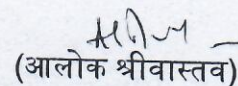 (आलोक श्रीवास्तव)